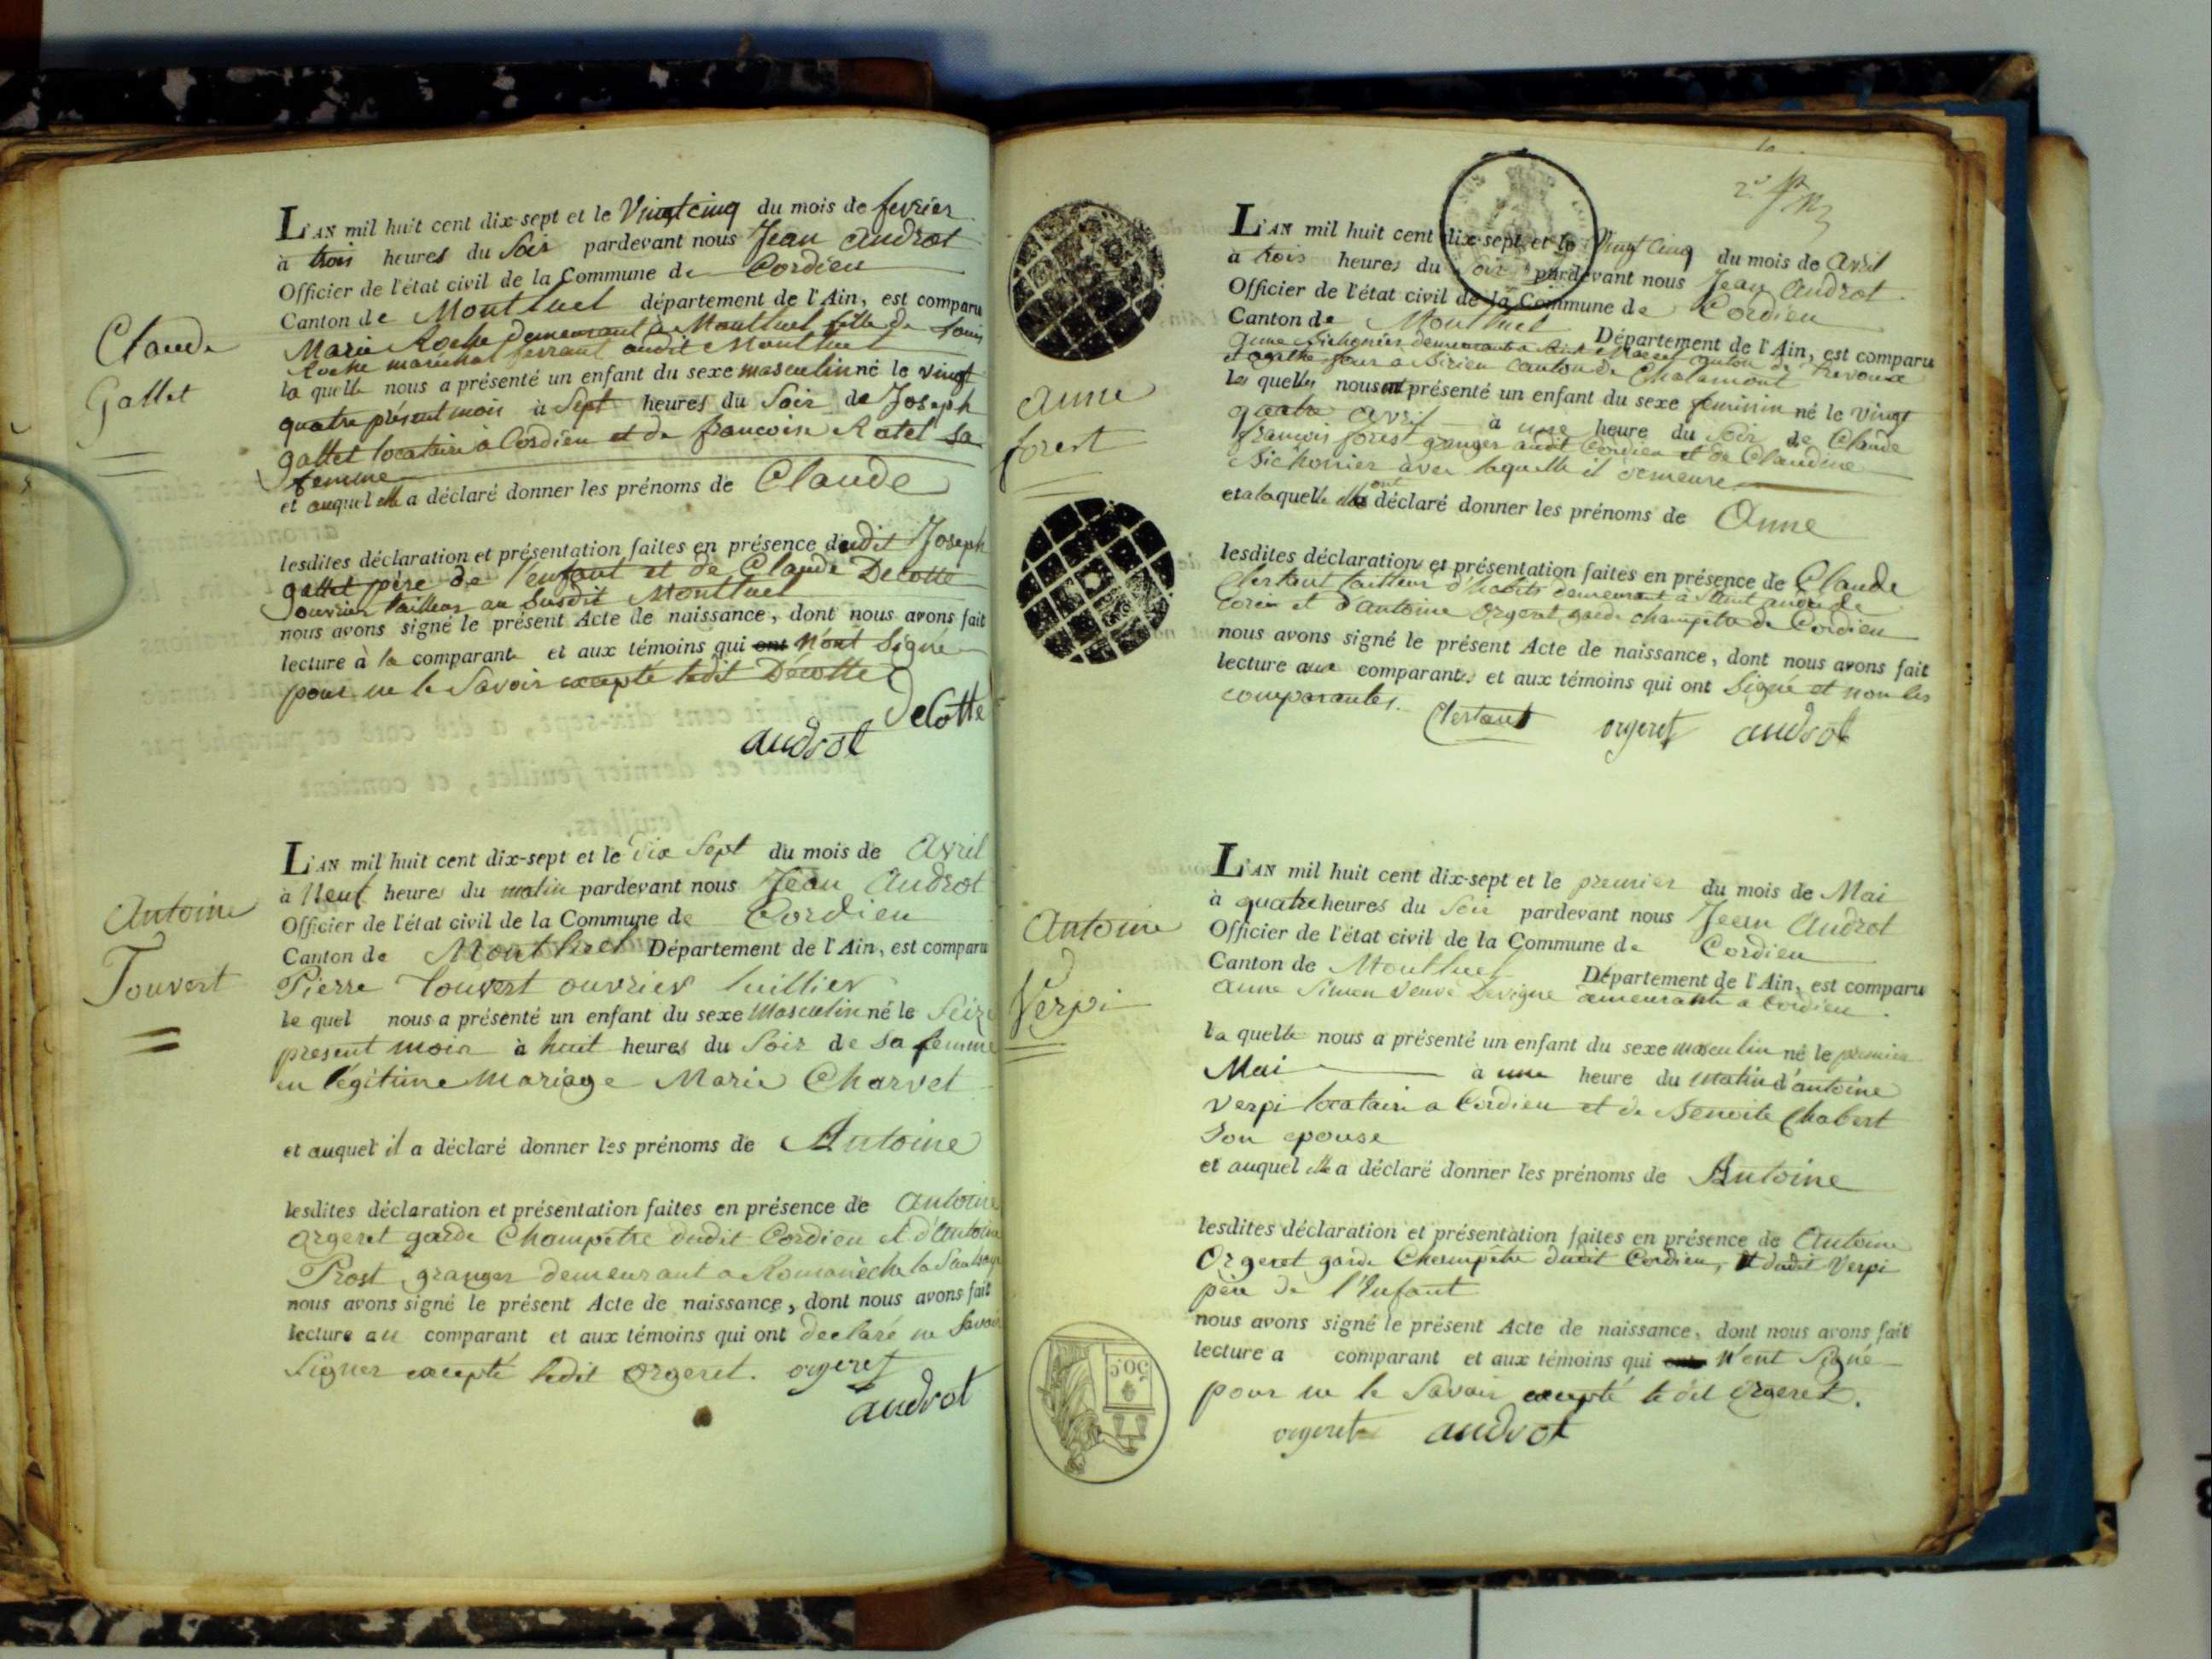 Claude
Gallet
L'AN mil huit cent dix-sept et le Vingt cinq du mois de fevrier
à trois heures du Soir pardevant nous Jean Androt
Officier de l'état civil de la Commune de Cordieu
Canton de Montluel département de l'Ain, est comparu
Marie Roche demeurant à Montluel fille de Louis
Roche maréchal ferrant audit Montluel
la quelle nous a présenté un enfant du sexe masculin né le vingt
quatre présent mois à Sept heures du Soir de Joseph
gallet locataire à Cordieu et de francoise Ratel Sa
femme
et auquel elle a déclaré donner les prénoms de Claude
lesdites déclaration et présentation faites en présence dudit Joseph
gallet père de l'enfant et de Claude Decotte
ouvrier tailleur au Susdit Montluel
nous avons signé le présent Acte de naissance, dont nous avons fait
lecture à la comparante et aux témoins qui ont n'ont Signé
pour ne le Savoir excepté ledit Décotte
DeCotte
androt
Antoine
Touvert
L'AN mil huit cent dix-sept et le dix Sept du mois de Avril
à Neuf heures du matin pardevant nous Jean Androt
Officier de l'état civil de la Commune de Cordieu
Canton de Montluel Département de l'Ain, est comparu
Pierre Touvert ouvrier tuillier
le quel nous a présenté un enfant du sexe Masculin né le Seize
present mois à huit heures du Soir de Sa femme
en légitime Mariage Marie Charvet
et auquel il a déclaré donner les prénoms de Antoine
lesdites déclaration et présentation faites en présence de Antoine
Orgeret garde Champêtre dudit Cordieu et d'Antoine
Prost granger demeurant a Romanèche la Saulsaye
nous avons signé le présent Acte de naissance, dont nous avons fait
lecture au comparant et aux témoins qui ont declaré ne Savoir
Signer excepté ledit Orgeret. orgeret
androt
anne
forest
L'AN mil huit cent dix-sept et le Vingt Cinq du mois de Avril
à trois heures du Soir pardevant nous Jean Androt
Officier de l'état civil de la Commune de Cordieu
Canton de Montluel Département de l'Ain, est comparu
Anne Bichonier demeurante a Saint Marcel canton de Trevoux
et agathe four a Birieu Canton de Chalamont
les quelles nous ont présenté un enfant du sexe feminin né le vingt
quatre avril à une heure du Soir de Claude
francois forest granger audit Cordieu et de Claudine
Bichonier avec laquelle il demeure
et a laquelle elles ont déclaré donner les prénoms de Anne
lesdites déclaration et présentation faites en présence de Claude
Clertant tailleur d'habits demeurant à Saint andré de
Corcy et d'antoine Orgeret garde champêtre de Cordieu
nous avons signé le présent Acte de naissance, dont nous avons fait
lecture aux comparantes et aux témoins qui ont Signé et non les
comparantes.
Clertant orgeret androt
Antoine
Verpi
L'AN mil huit cent dix-sept et le premier du mois de Mai
à quatre heures du Soir pardevant nous Jean Androt
Officier de l'état civil de la Commune de Cordieu
Canton de Montluel Département de l'Ain, est comparu
Anne Simon veuve Devigne demeurante a Cordieu.
la quelle nous a présenté un enfant du sexe masculin né le premier
Mai à une heure du Matin d'antoine
Verpi locataire a Cordieu et de Benoite Chabert
Son epouse
et auquel elle a déclaré donner les prénoms de Antoine
lesdites déclaration et présentation faites en présence de Antoine
Orgeret garde Champêtre dudit Cordieu, et dudit Verpi
père de l'Enfant
nous avons signé le présent Acte de naissance, dont nous avons fait
lecture a comparant et aux témoins qui ont N'ont Signé
pour ne le Savoir excepté le dit Orgeret.
orgeret androt
50C